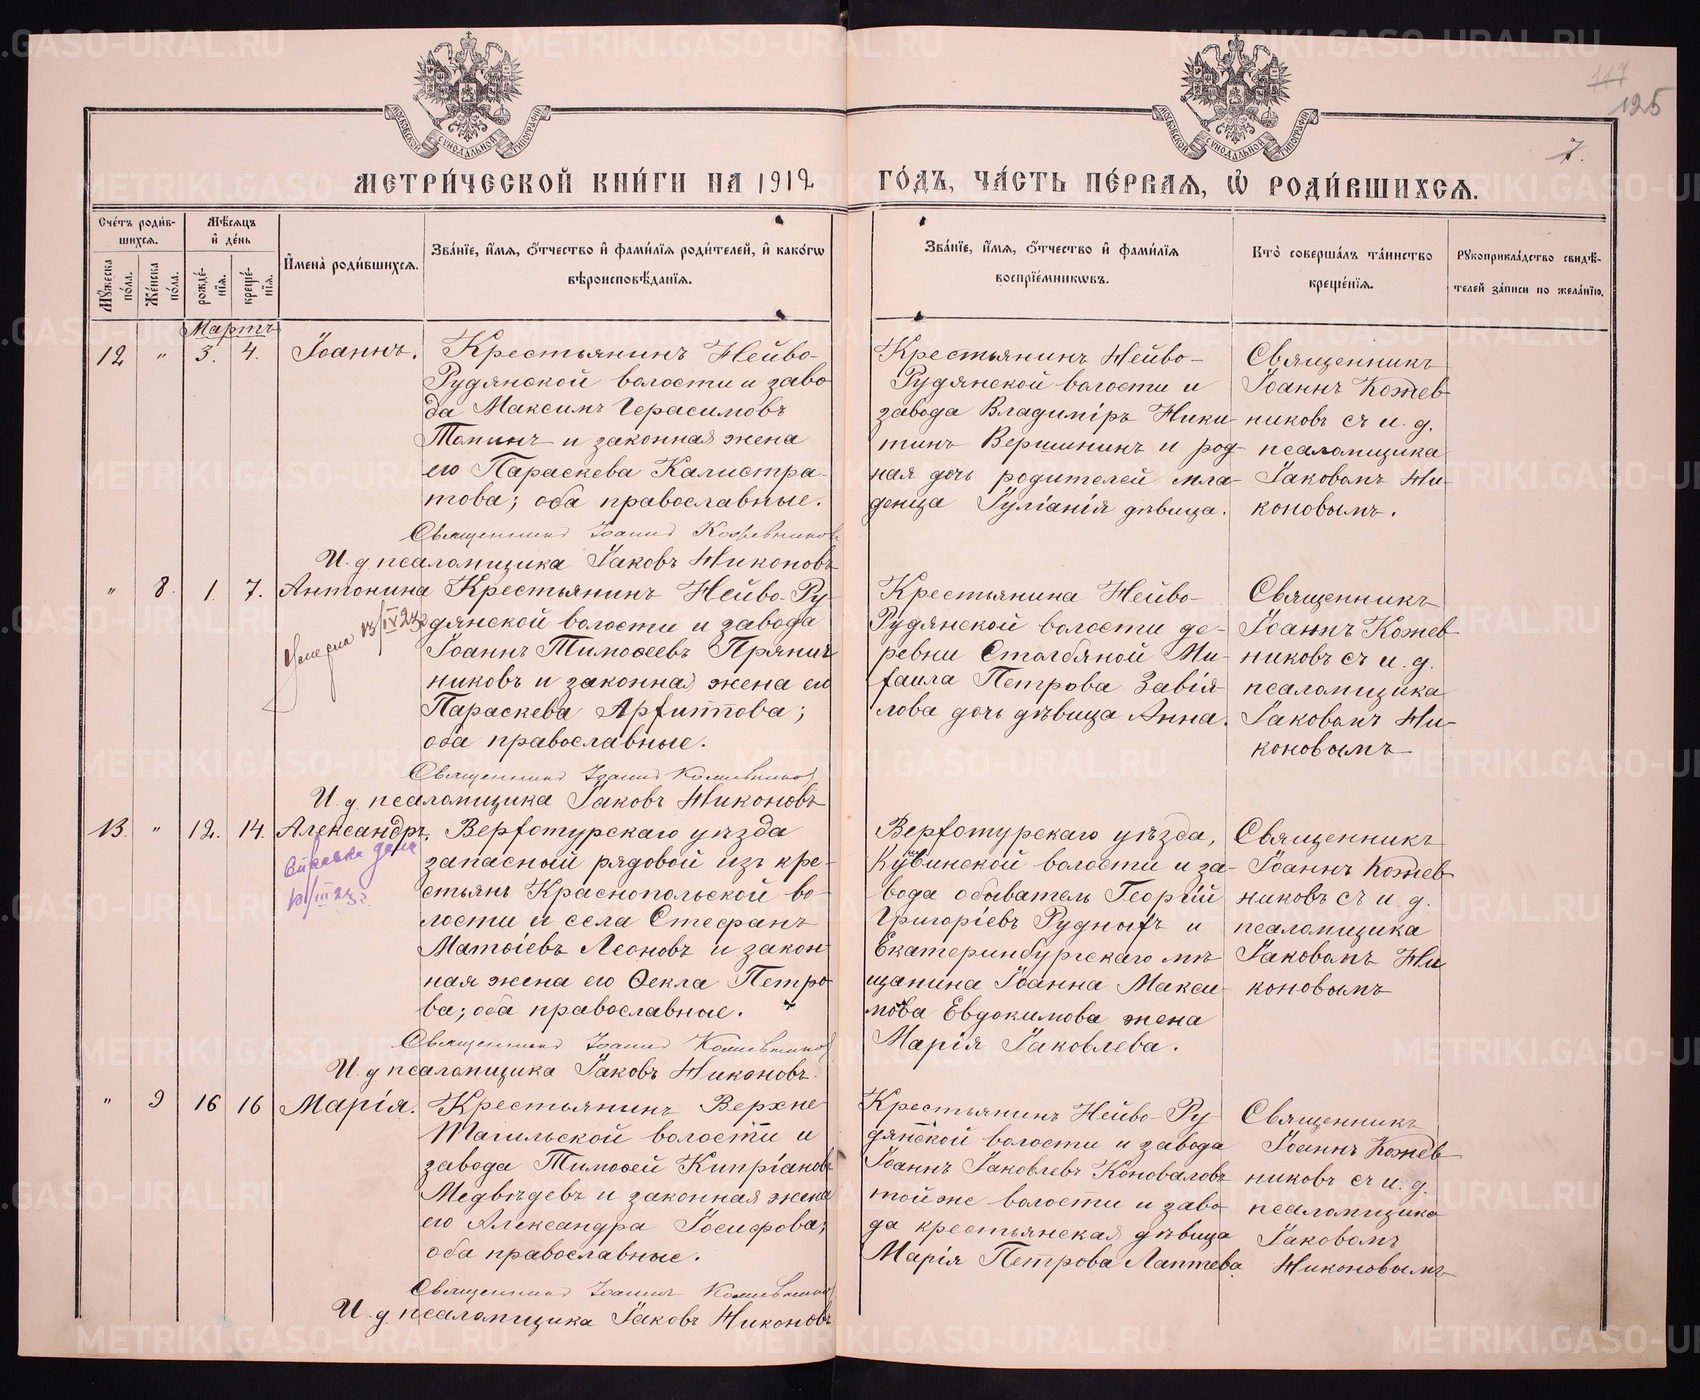 117
125
7.
МОСКОВСКОЙ СѴНОДАЛЬНОЙ ТИПОГРАФІИ
МОСКОВСКОЙ СѴНОДАЛЬНОЙ ТИПОГРАФІИ
МЕТРИ́ЧЕСКОЙ КНИ́ГИ НА 1912
ГО́ДЪ, ЧА́СТЬ ПЕ́РВАЯ, Ѡ҆ РОДИ́ВШИХСЯ.
Сче́тъ роди́в-
шихся.
Мꙋ́жеска по́ла.
Же́нска по́ла.
Мѣ́сяцъ
и҆ де́нь
рожде́-
нїя.
креще́-
нїя.
И҆мена̀ роди́вшихся.
Зва́нїе, и҆́мя, ѻ҆́тчество и҆ фами́лїя роди́телей, и҆ како́гѡ
вѣроисповѣ́данїя.
Зва́нїе, и҆́мя, ѻ҆́тчество и҆ фами́лїя
воспрїе́мникѡвъ.
Кто̀ соверша́лъ та́инство
креще́нїя.
Рꙋкоприкла́дство свидѣ́-
телей за́писи по жела́нїю.
Мартъ
12 " 3. 4. Іоаннъ.
Крестьянинъ Нейво-
Рудянской волости и заво
да Максимъ Герасимовъ
Топинъ и законная жена
его Параскева Калистра-
това; оба православные.
Священникъ Іоаннъ Кожевниковъ
И. д псаломщика Іаковъ Никоновъ
Крестьянинъ Нейво-
Рудянской волости и
завода Владиміръ Ники-
тинъ Вершининъ и род-
ная дочь родителей мла-
денца Іуліанія дѣвица.
Священникъ
Іоаннъ Кожев
никовъ съ и. д.
псаломщика
Іаковомъ Ни-
коновымъ.
" 8. 1. 7. Антонина
Умерла 13/IV 23
Крестьянинъ Нейво-Ру-
дянской волости и завода
Іоаннъ Тимоѳеевъ Прянич
никовъ и законная жена его
Параскева Архиппова;
оба православные.
Священникъ Іоаннъ Кожевниковъ
И. д. псаломщика Іаковъ Никоновъ
Крестьянина Нейво-
Рудянской волости де-
ревни Столбяной Ми-
хаила Петрова Завья
лова дочь дѣвица Анна.
Священникъ
Іоаннъ Кожев
никовъ съ и. д.
псаломщика
Іаковомъ Ни-
коновымъ
13. " 12. 14. Александръ.
дана
/III 23 г.
Верхотурскаго уѣзда
запасный рядовой изъ кре-
стьянъ Краснопольской во-
лости и села Стефанъ
Матѳіевъ Леоновъ и закон
ная жена его Ѳекла Петро
ва; оба православные.
Священникъ Іоаннъ Кожевниковъ
И. д псаломщика Іаковъ Никоновъ.
Верхотурскаго уѣзда,
Кушвинской волости и за-
вода обыватель Георгій
Григоріевъ Рудныхъ и
Екатеринбургскаго мѣ
щанина Іоанна Макси-
мова Евдокимова жена
Марія Іаковлева.
Священникъ
Іоаннъ Кожев
никовъ съ и. д.
псаломщика
Іаковомъ Ни
коновымъ
" 9 16 16 Марія.
Крестьянинъ Верхне-
Тагильской волости и
завода Тимоѳей Кипріановъ
Медвѣдевъ и законная жена
его Александра Іосифова;
оба православные.
Священникъ Іоаннъ Кожевниковъ
И. д. псаломщика Іаковъ Никоновъ
Крестьянинъ Нейво-Ру
дянской волости и завода
Іоаннъ Іаковлевъ Коноваловъ
той же волости и заво
да крестьянская дѣвица
Марія Петрова Лаптева.
Священникъ
Іоаннъ Кожев
никовъ съ и. д.
псаломщика
Іаковомъ
Никоновымъ